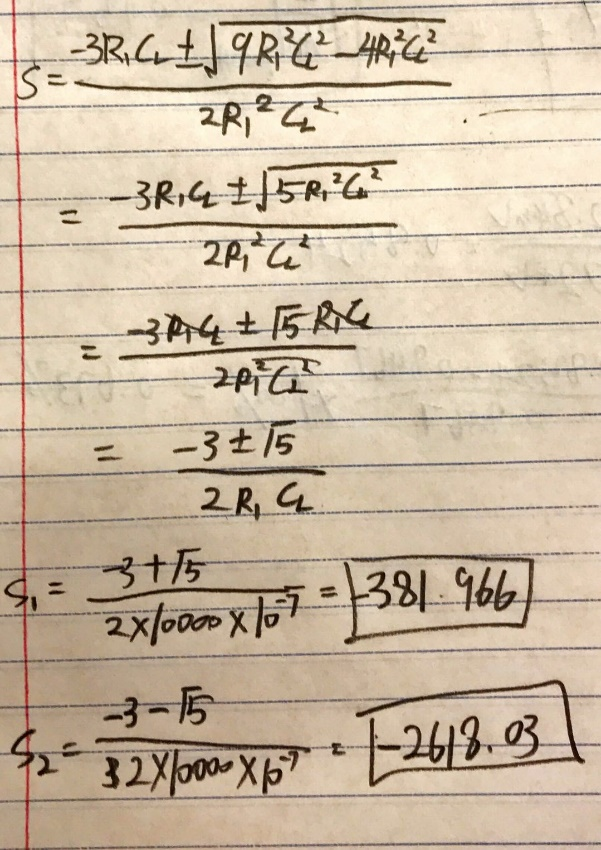 S = (-3R₁C₂ ± √(9R₁²C₂² - 4R₁²C₂²)) / (2R₁²C₂²)
= (-3R₁C₂ ± √(5R₁²C₂²)) / (2R₁²C₂²)
= (-3R₁C₂ ± √5 R₁C₂) / (2R₁²C₂²)
= (-3 ± √5) / (2R₁C₂)
S₁ = (-3+√5) / (2×10000×10⁻⁷) = -381.966
S₂ = (-3-√5) / (2×10000×10⁻⁷) = -2618.03